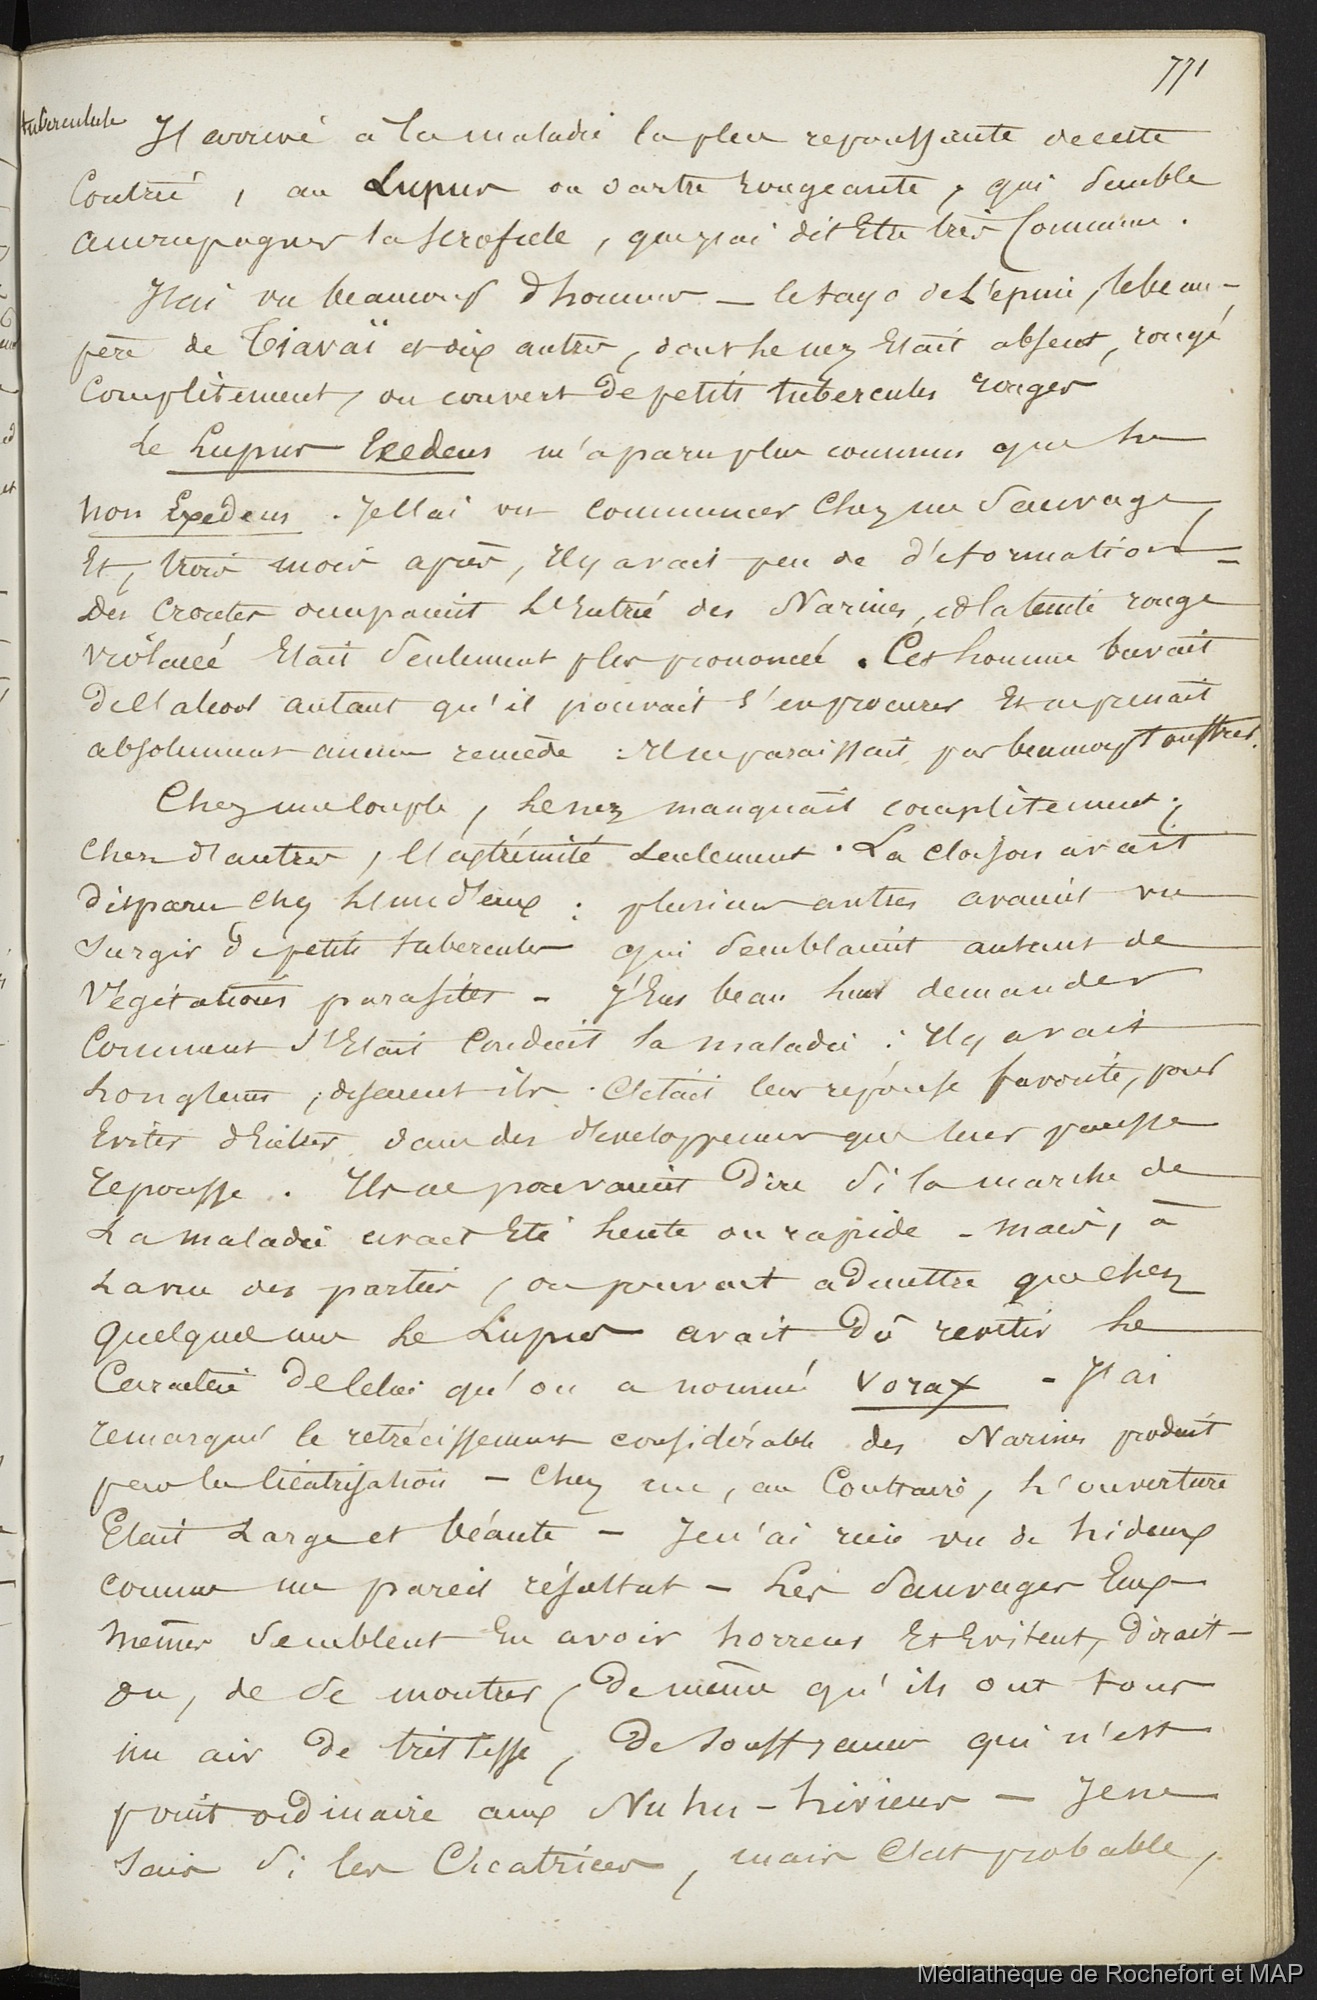 771
tubercule
J'arrive à la maladie la plus repoussante de cette
Contrée, au Lupus ou dartre rongeante, qui semble
accompagner la scrofule, que j'ai dit Etre très Commune.
J'ai vu beaucoup d'hommes — le tayo de L'epine, le beau-
père de Tiavaï et dix autres, dont le nez Etait absent, rongé
Complètement, ou couvert de petits tubercules rouges
Le Lupus Exedens m'a paru plus commun que le
non Exedens. Je l'ai vu commencer Chez un Sauvage
Et, trois mois après, il y avait peu de déformation =
Des Croutes occupaient L'Entrée des Narines, et la teinte rouge
violacée Etait Seulement plus prononcée. Cet homme buvait
de l'alcool autant qu'il pouvait s'en procurer Et ne prenait
absolument aucun remède : Il ne paraissait pas beaucoup souffrir.
Chez un couple, le nez manquait complètement ;
chez d'autres, l'extrémité seulement. La cloison avait
disparu chez l'un d'eux : plusieurs autres avaient vu
surgir de petits tubercules qui semblaient autant de
Végétations parasites - J'Eus beau leur demander
Comment s'Etait Conduit la maladie : Il y avait
longtems, disaient ils. C'était leur réponse favorite, pour
Eviter d'Entrer dans des développemens que leur paresse
repousse. Ils ne pouvaient dire si la marche de
La maladie avait Eté lente ou rapide - mais, à
La vue des parties, on pouvait admettre que chez
quelques uns Le Lupus avait dû revêtir le
Caractère de celui qu'on a nommé Vorax - J'ai
remarqué le retrécissement considérable des Narines produit
par la Cicatrisation - Chez un, au Contraire, l'ouverture
Etait Large et béante - Je n'ai rien vu de hideux
comme un pareil résultat - Les Sauvages Eux-
memes Semblent En avoir horreur Et Evitent, dirait-
on, de se montrer, de même qu'ils ont tous
un air de tristesse, de souffrance qui n'est
point ordinaire aux Nuhu-hiviens - Je ne
Sais si les Cicatrices, mais C'est probable,
Médiathèque de Rochefort et MAP